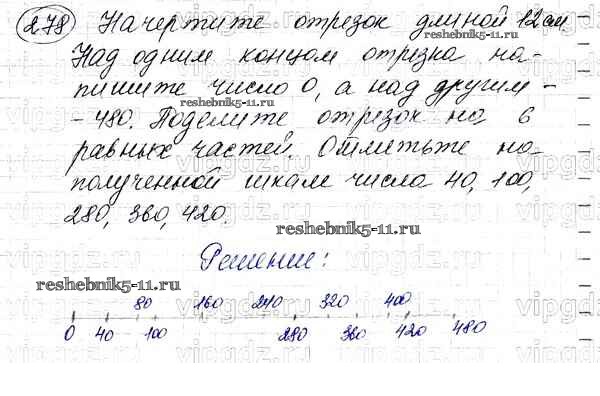 278 Начертите отрезок длиной 12 см.
Над одним концом отрезка на-
пишите число 0, а над другим -
reshebnik5-11.ru
- 480. Поделите отрезок на 6
равных частей. Отметьте на
полученной шкале числа 40, 100,
280, 360, 420.
reshebnik5-11.ru
Решение:
reshebnik5-11.ru
80 160 240 320 400
0 40 100 280 360 420 480
vipgdz.ru